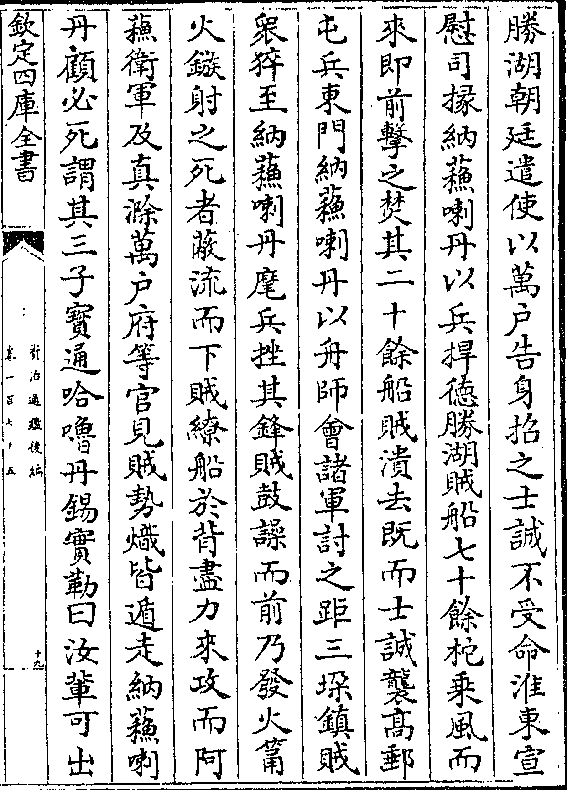 勝湖朝廷遣使以萬户告身招之士誠不受命淮東宣
慰司掾納蘓喇丹以兵捍德勝湖賊船七十餘柁乗風而
來即前擊之焚其二十餘船賊潰去既而士誠襲髙郵
屯兵東門納蘓喇丹以舟師會諸軍討之距三垜鎮賊
衆猝至納蘓喇丹麾兵挫其鋒賊鼓譟而前乃發火筩
火鏃射之死者蔽流而下賊繚船於背盡力來攻而阿
蘓衛軍及真滁萬户府等官見賊勢熾皆遁走納蘓喇
丹顧必死謂其三子寳通哈嚕丹錫實勒曰汝輩可出
欽定四庫全書
資治通鑑後編
卷一百七十五
十九